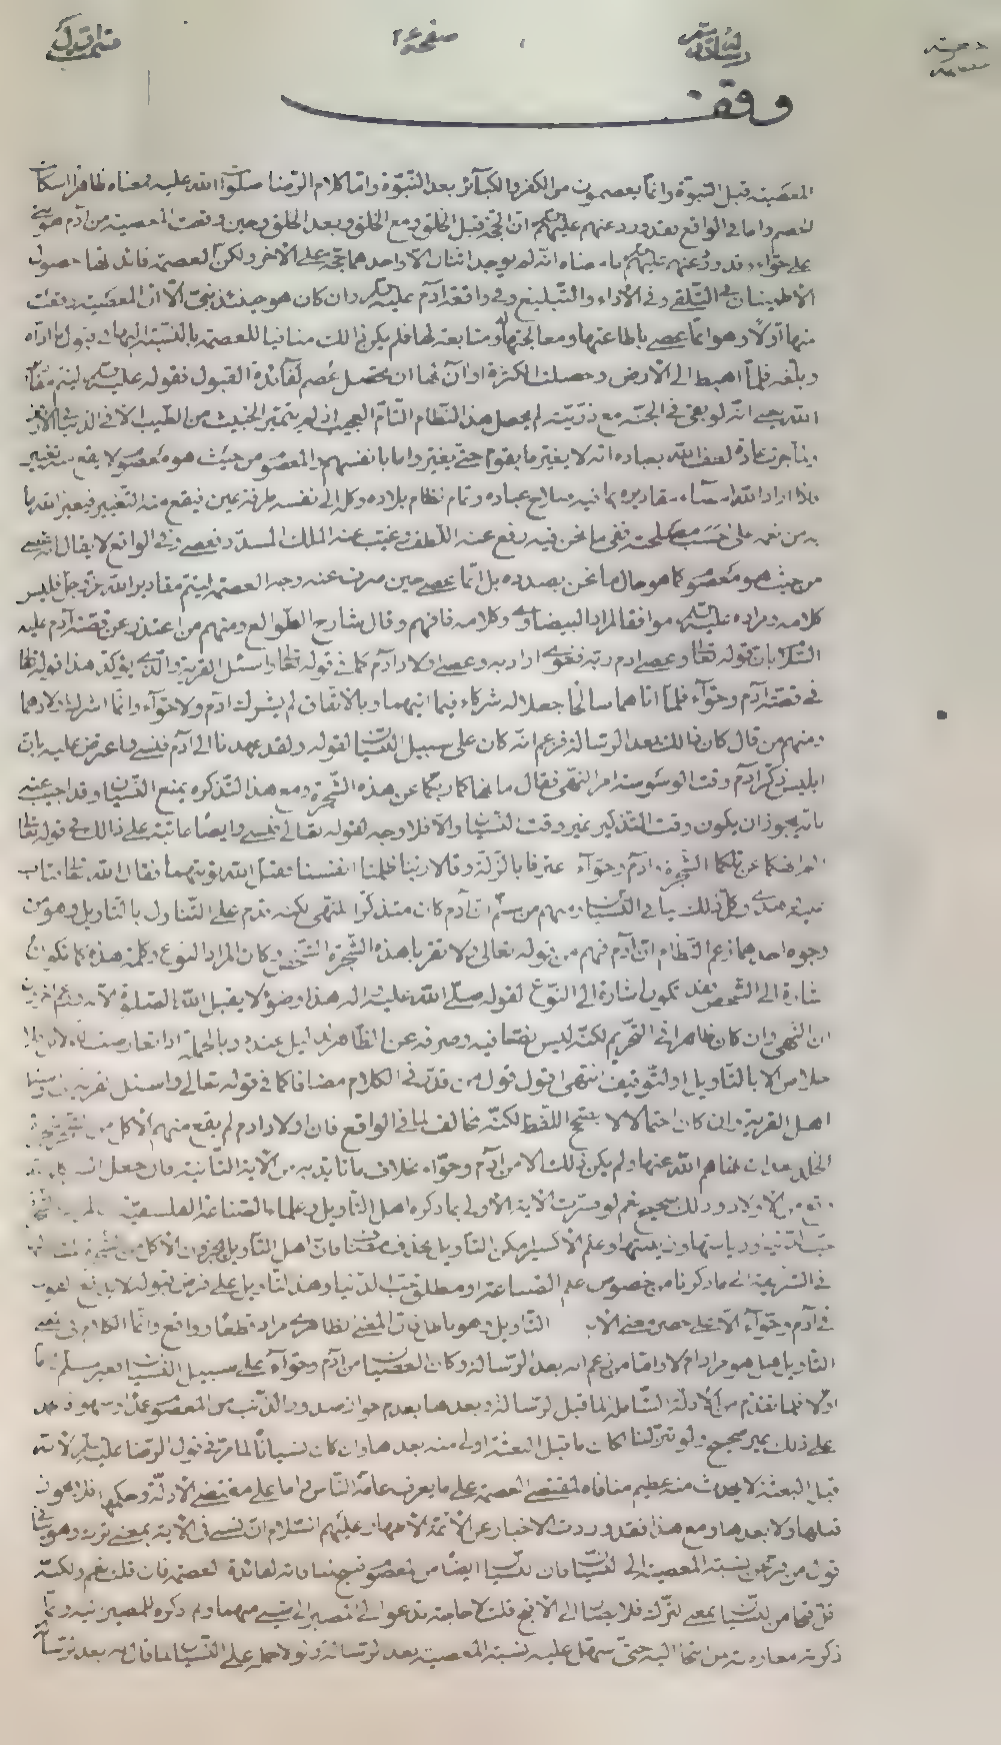 صفحة
وقف
المعصية قبل النبوّة وانّما يعصمون من الكفر والكبآئر بعد النّبوّة وامّا كلام الرّضا صلوات الله عليه فمعناه ظاهر
وامّا في الواقع فقد ورد عنهم عليهم انّ الحجّة قبل الخلق ومع الخلق وبعد الخلق وحين وقعت المعصية من آدم هو
على حوّاء وقد ورد عنهم ما معناه انّه لو يوجد اثنان الّا واحدهما حجّة على الآخر ولكنّ العصمة فائدتها حصول
الاطمينان في التّلقّي وفي الأداء والتّبليغ وفي واقعة آدم وان كان هو حينئذ نبيّ الّا انّ المعصية وقعت
منها اوّلاً وهو انّما عصى باطاعتها ومتابعة لها فلم يكن ذلك منافيا للعصمة بالنّسبة اليها
فلمّا اهبط الى الأرض وحصلت الكثرة لفآئدة القبول فقوله عليه
الله يعني انّه لو بقي في الجنّة مع ذرّيّته لم يحصل هذا النّظام التّامّ العجيب اذ لم يتميّز الخبيث من الطّيب الّا في الدّنيا
بعباده انّه لا يغيّر ما بقوم حتّى يغيّروا ما بانفسهم والمعصوم من حيث هو معصوم لا يقع منه تغيير
فاذا اراد الله صلاح عباده وتمام نظام بلاده وكله الى نفسه طرفة عين فيقع منه التّغيير فيغيّر الله ما
به من نعمه على حسب مصلحته ففي ما نحن فيه رفع عنه اللّطف وغيّب عنه الملك المسدّد فعصى وفي الواقع لا يقال
من حيث هو معصوم كما هو حال ما نحن بصدده بل انّما عصى حين صرف عنه وجه العصمة ليتمّ مقادير الله عزّ وجلّ فليس
كلامه ومراده عليه موافقا لمراد البيضاوي وكلامه فافهم وقال شارح الطّوالع ومنهم من اعتذر عن قصّة آدم عليه
السّلام بانّ قوله تعالى وعصى ادم ربّه فغوى اراد به وعصى اولاد آدم كما في قوله تعالى واسئل القرية والّذي يؤكّد هذا قوله تعالى
في قصّة آدم وحوّآء فلمّا اتاهما صالحا جعلا له شركاء فيما اتيهما وبالاتّفاق لم يشرك ادم ولا حوّآء وانّما اشرك اولادهما
ومنهم من قال كان ذلك بعد الرّسالة فزعم انّه كان على سبيل النّسيان لقوله ولقد عهدنا الى آدم فنسي واعترض عليه بانّ
ابليس ذكّر آدم وقت الوسوسة امر النّهي فقال ما نهاكما ربّكما عن هذه الشّجرة ومع هذا التّذكره يمنع النّسيان وقد اجيب عنه
بانّه يجوز ان يكون وقت التّذكير غير وقت النّسيان والّا فلا وجه لقوله تعالى فنسي وايضا عاتبه على ذلك في قوله تعالى
الم انهكما عن تلكما الشّجرة وآدم وحوّآء اعترفا بالزّلّة وقالا ربّنا ظلمنا انفسنا فقبل الله توبتهما فقال الله تعالى فتاب
عليه وهدى وكلّ ذلك ينافي النّسيان ومنهم من سلّم انّ آدم كان متذكّرا للنّهي لكنّه اقدم على التّناول بالتّأويل وهو من
وجوه احدها زعم النّظّام انّ آدم فهم من قوله تعالى ولا تقربا هذه الشّجرة الشّخص وكان المراد النّوع وكلمة هذه كما تكون
اشارة الى الشّخص فقد تكون اشارة الى النّوع لقوله صلّى الله عليه واله هذا وضوء لا يقبل الله الصّلوة الّا به وزعم اخرون
انّ النّهي وان كان ظاهرا في التّحريم لكنّه ليس نصّا فيه وصرفه عن الظّاهر لدليل عنده وبالجملة
خلاص الّا بالتّأويل او التّوقيف انتهى اقول قول من قدّر في الكلام مضافا كما في قوله تعالى واسئل القرية
اهل القرية وان كان احتمالا لا بفتح اللّفظ لكنّه مخالف لما في الواقع فانّ اولاد ادم لم يقع منهم الاكل من الشجرة
الّتي نهاهم الله عنها ولم يكن ذلك الّا من آدم وحوّاء بخلاف ما نأيّد به من الآية الثّانية فانّ جعل
من الاولاد وذلك صحيح نعم لو فسّرت الآية الأولى بما ذكره اهل التّأويل وعلماء الصّناعة الفلسفيّة
حبّ الدّنيا ورياستها وزينتها وعلم الأكسير امكن التّأويل بحذف مضاف فانّ اهل التّأويل يجوّزون الأكل من
في الشّريعة الى ما ذكرنا من خصوص علم الصّناعة او مطلق حبّ الدّنيا وهذا التّأويل على فرض قبوله لا يدفع
في آدم وحوّآء الّا على حصر معنى الآية التّاويل وهو باطل فانّ المعنى الظّاهري مراد قطعا وواقع وانّما الكلام في معنى
التّأويل هل هو مراد ام لا وامّا من زعم انّه بعد الرّسالة وكان العصيان من آدم وحوّآء على سبيل النّسيان فغير مسلّم
اوّلا فلما تقدّم من الأدلّة الشّاملة لما قبل الرّسالة وبعدها بعدم جواز صدور الذّنب من المعصوم عمدا وسهوا وحمله
على ذلك غير صحيح ولو تنزّلنا لكان ما قبل البعثة اولى منه بعدها وان كان نسيانا لما مرّ في قول الرّضا عليه السّلام لأنّه
قبل البعثة لا يحدث منه عظيم منافاة لمقتضى العصمة على ما يعرفه عامّة النّاس وامّا على مقتضى الأدلّة وحكمها فلا يجوز
قبلها ولا بعدها ومع هذا فقد وردت الاخبار عن الأئمّة الأطهار عليهم السّلام انّ نسي في الآية بمعنى ترك وهو
قول من نزّهه عن نسبة المعصية الى النّسيان فانّ النّسيان ايضا من المعصوم قبيح لمنافاته لفائدة العصمة فان قلت نعم ولكنّه
اقلّ قبحا من النّسيان بمعنى التّرك فلا يصار الى الأقبح قلت لا حاجة تدعو الى المصير الى شيء منهما ولم ذكره للمصير
ذكرته معارضة من التجأ اليه حتّى سهل عليه نسبة المعصية بعد الرّسالة ولولا حمله على النّسيان لما قال انّه بعد الرّسالة